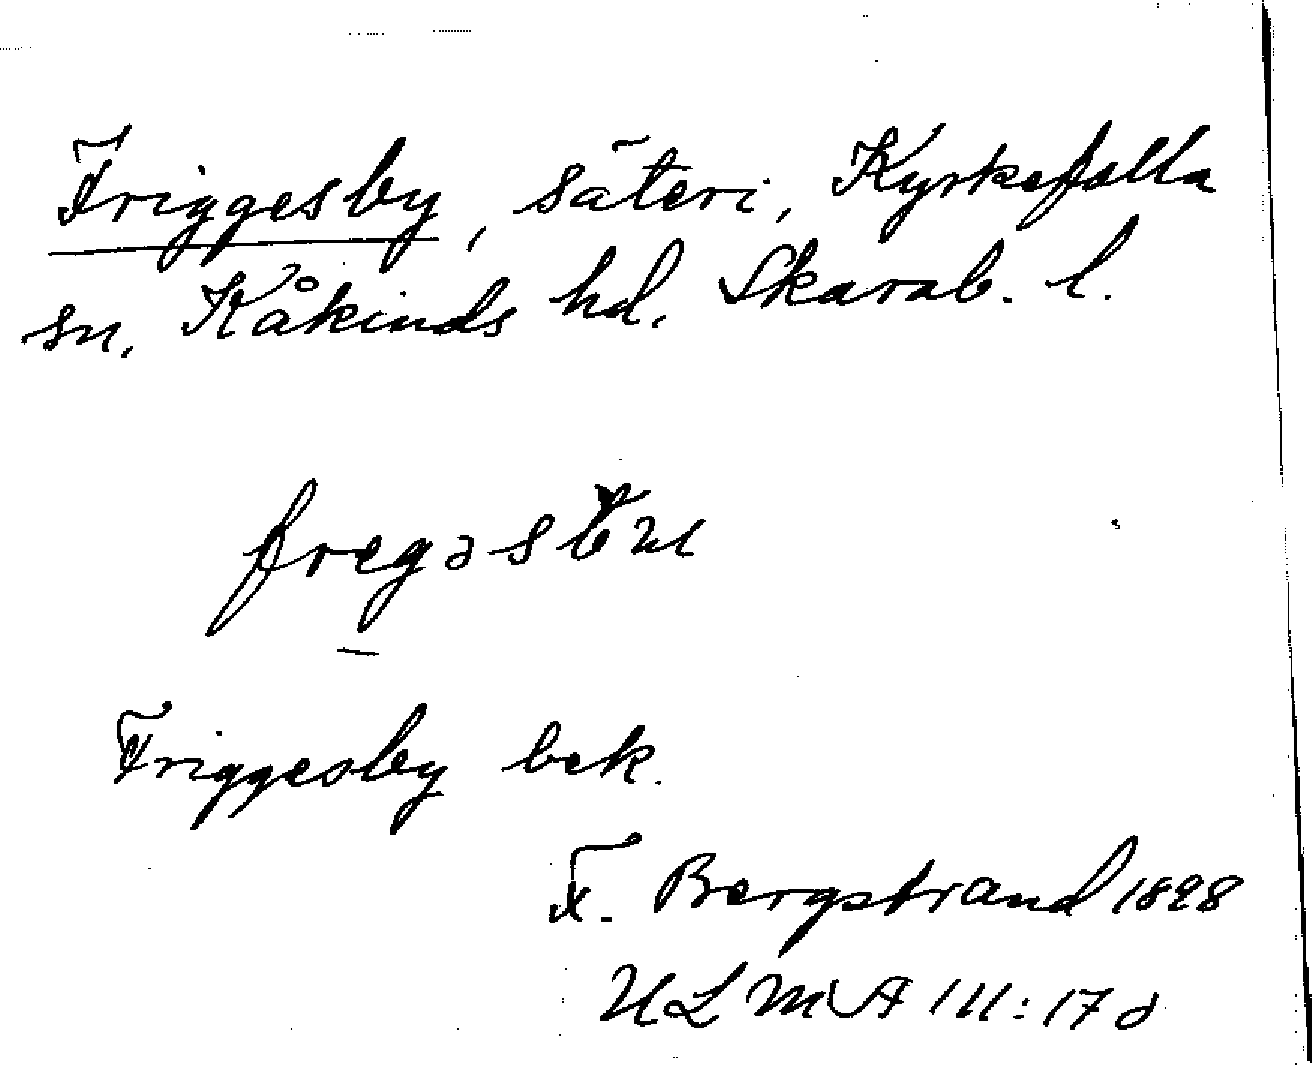 Friggesby, säteri, Kyrkefalla
sn. Kåkinds hd. Skarab. l.
Friggesby bek.
F. Bergstrand 1898
ULMA 111:17 d